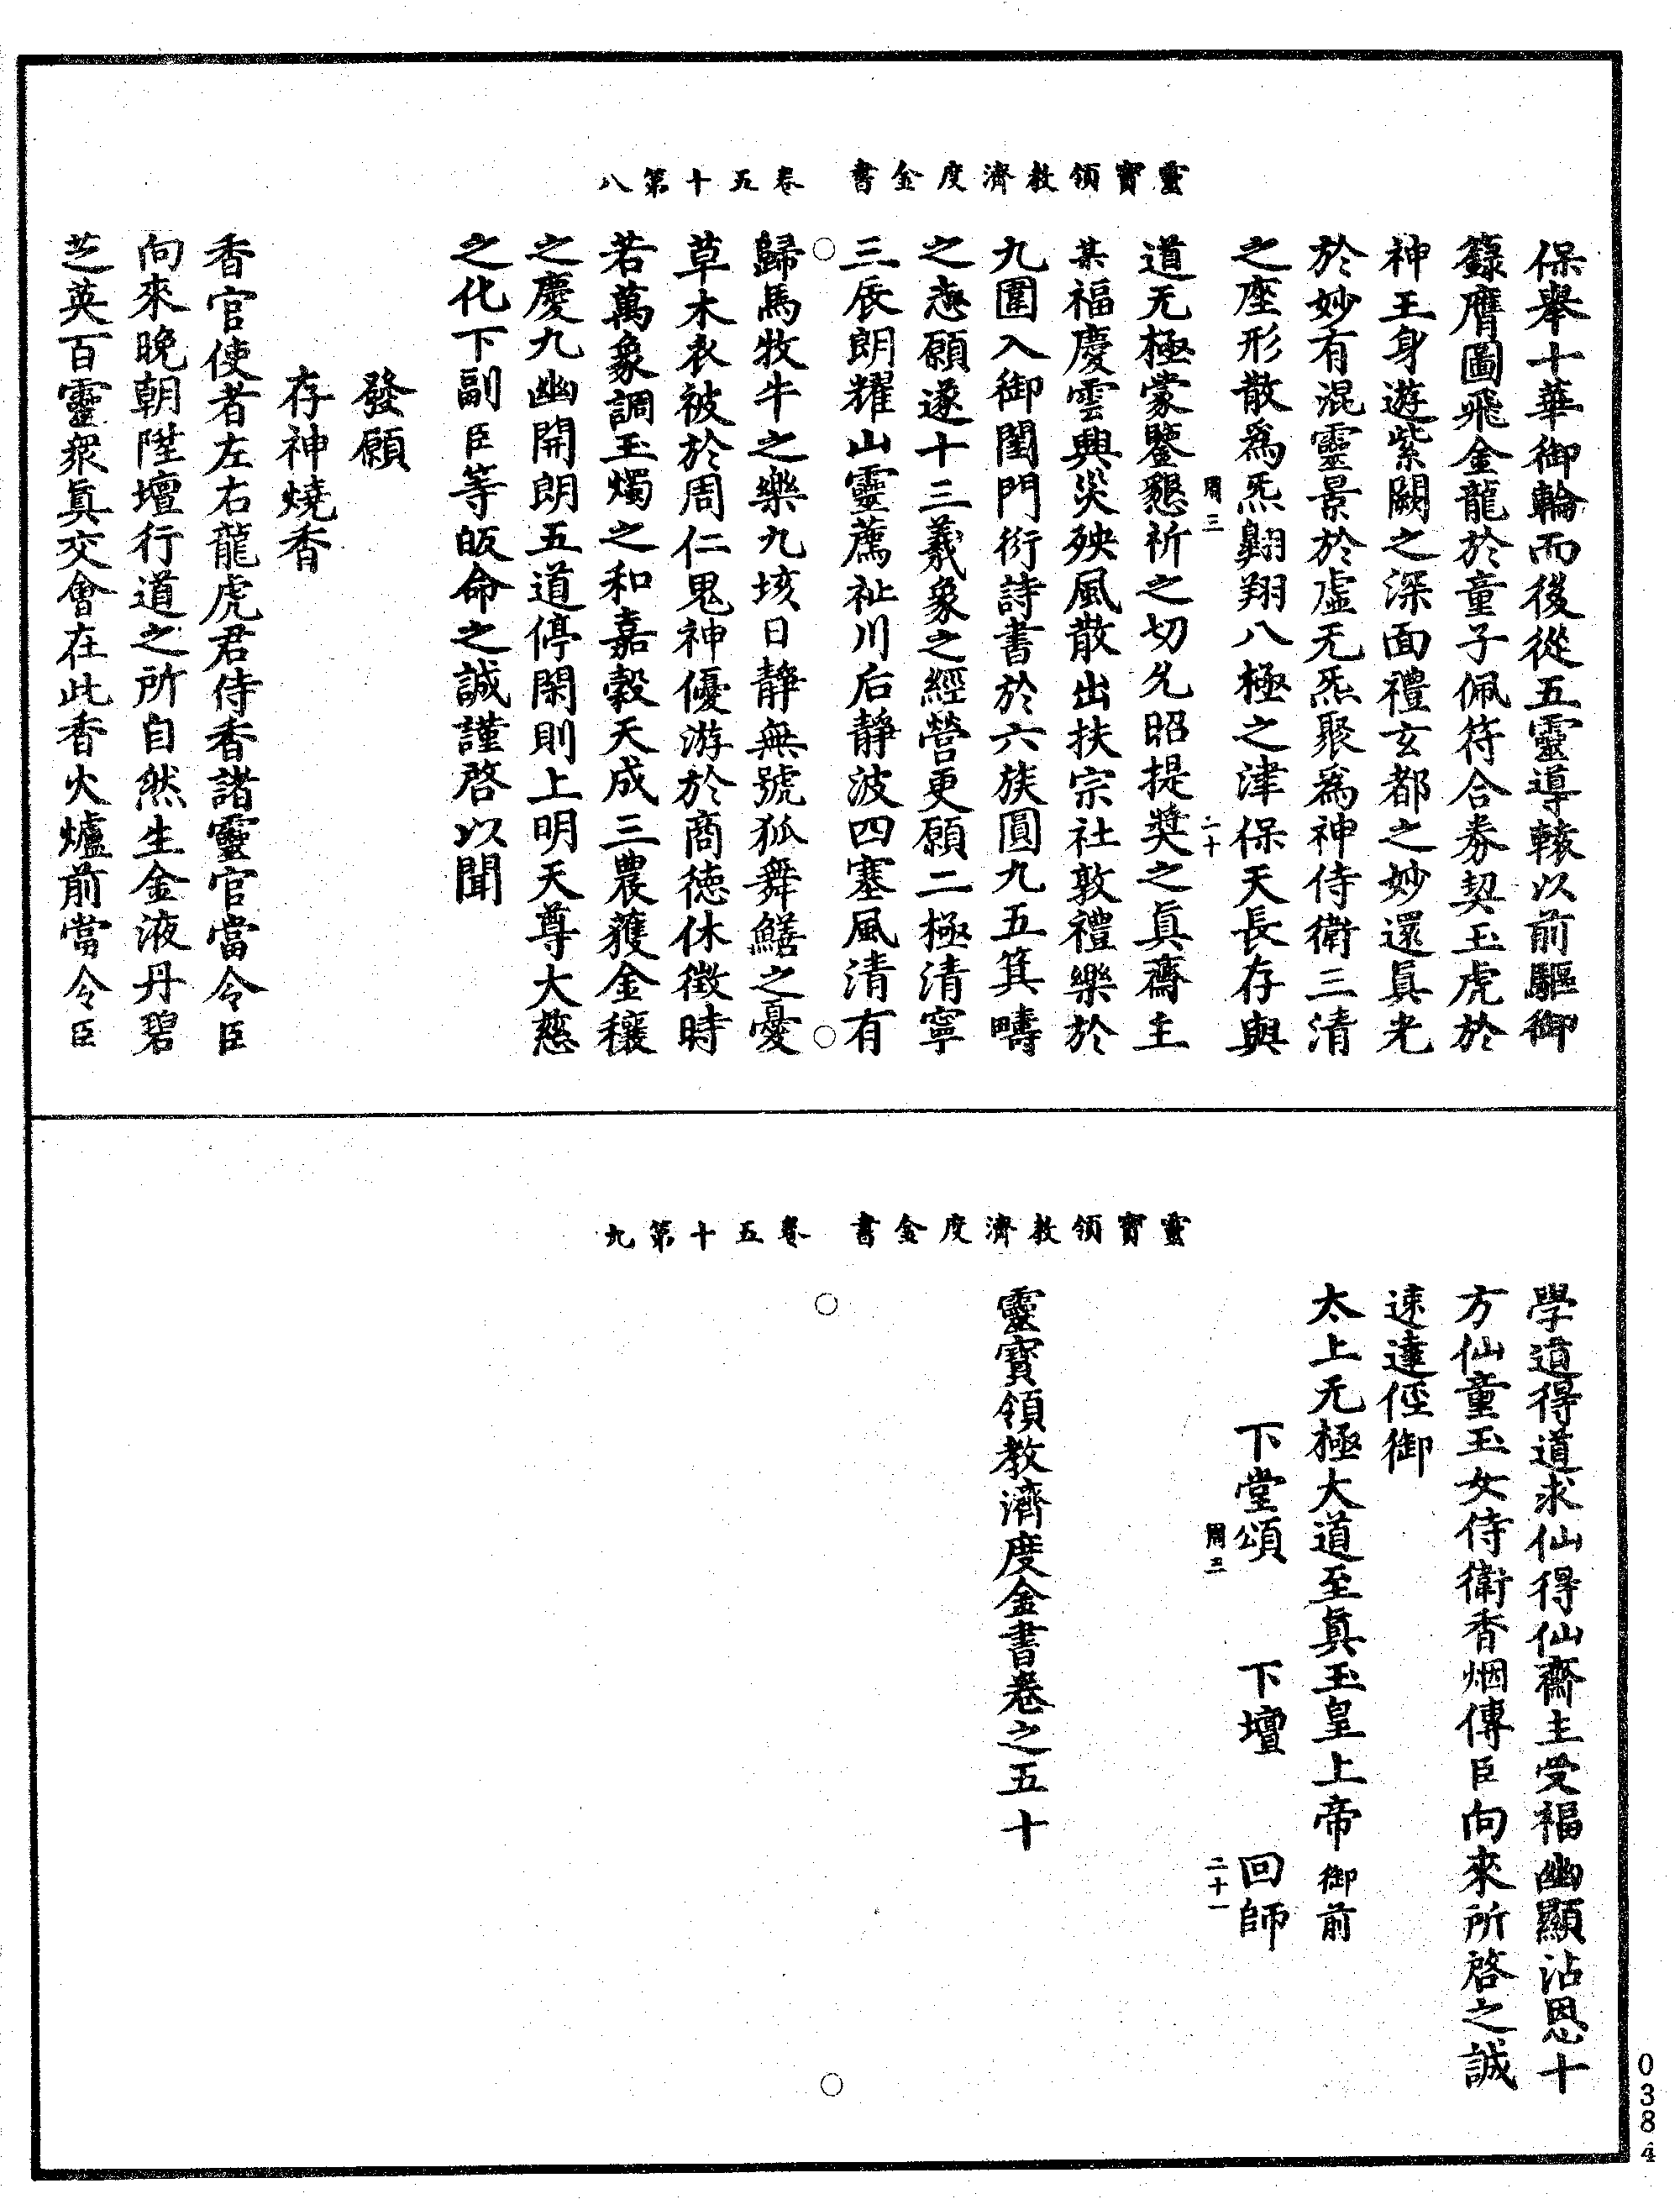 靈寶領教濟度金書　卷五十第八
保舉十華御輪而後從五靈導轅以前驅御
籙膺圖飛金龍於童子佩符合券契玉虎於
神王身遊紫闕之深面禮玄都之妙還眞光
於妙有混靈景於虛无炁聚爲神侍衛三清
之座形散爲炁翺翔八極之津保天長存與
周三　二十
道无極蒙鑒懇祈之切允昭提獎之眞齋主
某福慶雲興災殃風散出扶宗社敦禮樂於
九圍入御閨門衍詩書於六族圓九五箕疇
之志願遂十三羲象之經營更願二極清寧
三辰朗耀山靈薦祉川后静波四塞風清有
歸馬牧牛之樂九垓日静無號狐舞鱔之憂
草木衣被於周仁鬼神優游於商德休徵時
若萬象調玉燭之和嘉穀天成三農蓷金穰
之慶九幽開朗五道停閑則上明天尊大慈
之化下副臣等皈命之誠謹啓以聞
發願
存神燒香
香官使者左右龍虎君侍香諸靈官當令臣
向來晚朝陞壇行道之所自然生金液丹碧
芝英百靈衆眞交會在此香火爐前當令臣
靈寶領教濟度金書　卷五十第九
學道得道求仙得仙齋主受福幽顯沾恩十
方仙童玉女侍衛香烟傳臣向來所啓之誠
速達徑御
太上无極大道至眞玉皇上帝御前
下堂頌　下壇　回師
周三　二十一
靈寶領教濟度金書卷之五十
0384